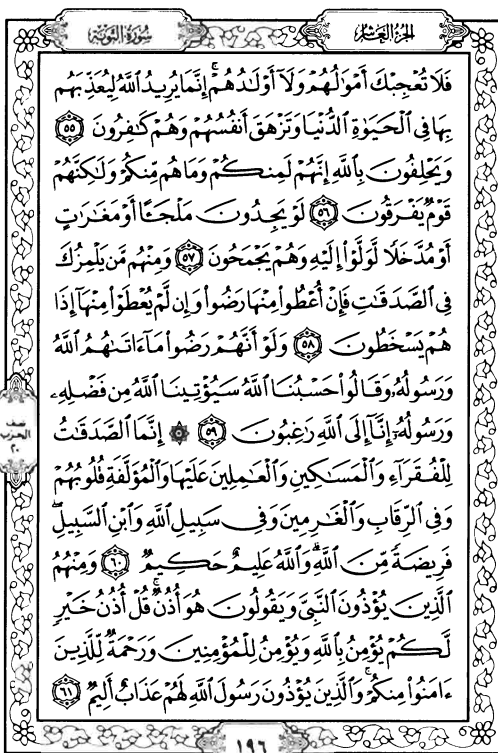 سُورَةُ التَّوْبَةِ
الجُزْءُ العَاشِرُ
فَلَا تُعْجِبْكَ أَمْوَٰلُهُمْ وَلَآ أَوْلَٰدُهُمْ ۚ إِنَّمَا يُرِيدُ ٱللَّهُ لِيُعَذِّبَهُم
بِهَا فِى ٱلْحَيَوٰةِ ٱلدُّنْيَا وَتَزْهَقَ أَنفُسُهُمْ وَهُمْ كَٰفِرُونَ ٥٥
وَيَحْلِفُونَ بِٱللَّهِ إِنَّهُمْ لَمِنكُمْ وَمَا هُم مِّنكُمْ وَلَٰكِنَّهُمْ
قَوْمٌ يَفْرَقُونَ ٥٦ لَوْ يَجِدُونَ مَلْجَـًٔا أَوْ مَغَٰرَٰتٍ
أَوْ مُدَّخَلًا لَّوَلَّوْا۟ إِلَيْهِ وَهُمْ يَجْمَحُونَ ٥٧ وَمِنْهُم مَّن يَلْمِزُكَ
فِى ٱلصَّدَقَٰتِ فَإِنْ أُعْطُوا۟ مِنْهَا رَضُوا۟ وَإِن لَّمْ يُعْطَوْا۟ مِنْهَآ إِذَا
هُمْ يَسْخَطُونَ ٥٨ وَلَوْ أَنَّهُمْ رَضُوا۟ مَآ ءَاتَىٰهُمُ ٱللَّهُ
وَرَسُولُهُۥ وَقَالُوا۟ حَسْبُنَا ٱللَّهُ سَيُؤْتِينَا ٱللَّهُ مِن فَضْلِهِۦ
وَرَسُولُهُۥٓ إِنَّآ إِلَى ٱللَّهِ رَٰغِبُونَ ٥٩ ۞ إِنَّمَا ٱلصَّدَقَٰتُ
لِلْفُقَرَآءِ وَٱلْمَسَٰكِينِ وَٱلْعَٰمِلِينَ عَلَيْهَا وَٱلْمُؤَلَّفَةِ قُلُوبُهُمْ
وَفِى ٱلرِّقَابِ وَٱلْغَٰرِمِينَ وَفِى سَبِيلِ ٱللَّهِ وَٱبْنِ ٱلسَّبِيلِ ۖ
فَرِيضَةً مِّنَ ٱللَّهِ ۗ وَٱللَّهُ عَلِيمٌ حَكِيمٌ ٦٠ وَمِنْهُمُ
ٱلَّذِينَ يُؤْذُونَ ٱلنَّبِىَّ وَيَقُولُونَ هُوَ أُذُنٌ ۚ قُلْ أُذُنُ خَيْرٍ
لَّكُمْ يُؤْمِنُ بِٱللَّهِ وَيُؤْمِنُ لِلْمُؤْمِنِينَ وَرَحْمَةٌ لِّلَّذِينَ
ءَامَنُوا۟ مِنكُمْ ۚ وَٱلَّذِينَ يُؤْذُونَ رَسُولَ ٱللَّهِ لَهُمْ عَذَابٌ أَلِيمٌ ٦١
نصف
الحزب
٢٠
١٩٦